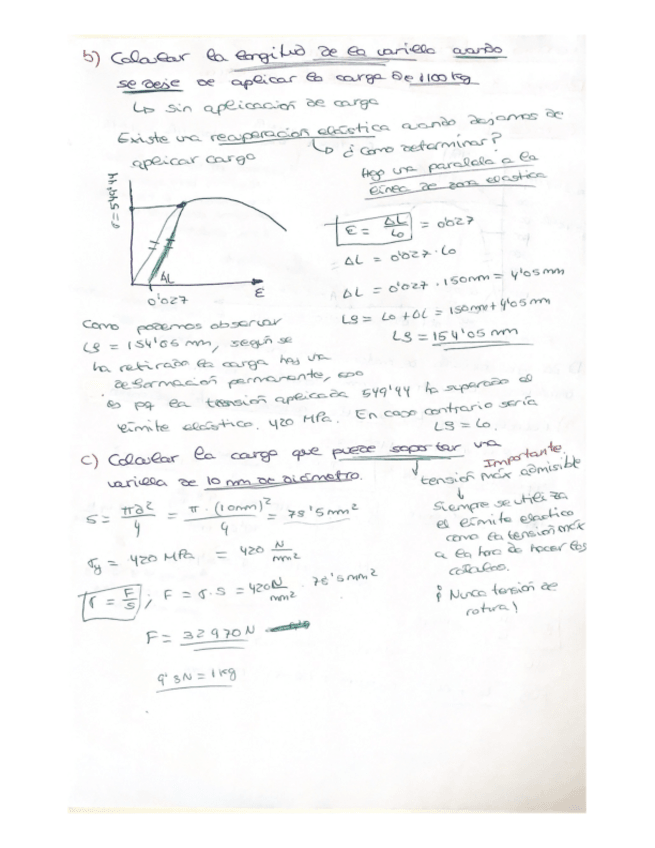 b) Calcular la longitud de la varilla cuando
se deje de aplicar la carga de 1100 kg
↳ sin aplicación de carga
Existe una recuperación elástica cuando dejamos de
aplicar carga
↳ ¿Cómo determinar?
Hago una paralela a la
línea de zona elástica
σ = 549'44
ΔL
0'027
ε
ε = ΔL / L0 = 0'027
ΔL = 0'027 · L0
ΔL = 0'027 · 150mm = 4'05 mm
Lf = L0 + ΔL = 150mm + 4'05mm
Lf = 154'05 mm
Como podemos observar
Lf = 154'05 mm, según se
ha retirado la carga hay una
deformación permanente, eso
es pq la tensión aplicada 549'44 ha superado el
límite elástico, 420 MPa. En caso contrario sería
Lf = L0.
c) Calcular la carga que puede soportar una
varilla de 10 mm de diámetro.
Importante
tensión máx admisible
↓
Siempre se utiliza
el límite elástico
como la tensión máx
a la hora de hacer los
cálculos.
¡ Nunca tensión de
rotura !
S = πd² / 4 = π · (10mm)² / 4 = 78'5 mm²
σy = 420 MPa = 420 N/mm²
σ = F/S ; F = σ · S = 420 N/mm² · 78'5 mm²
F = 32970 N
9'8N = 1 kg